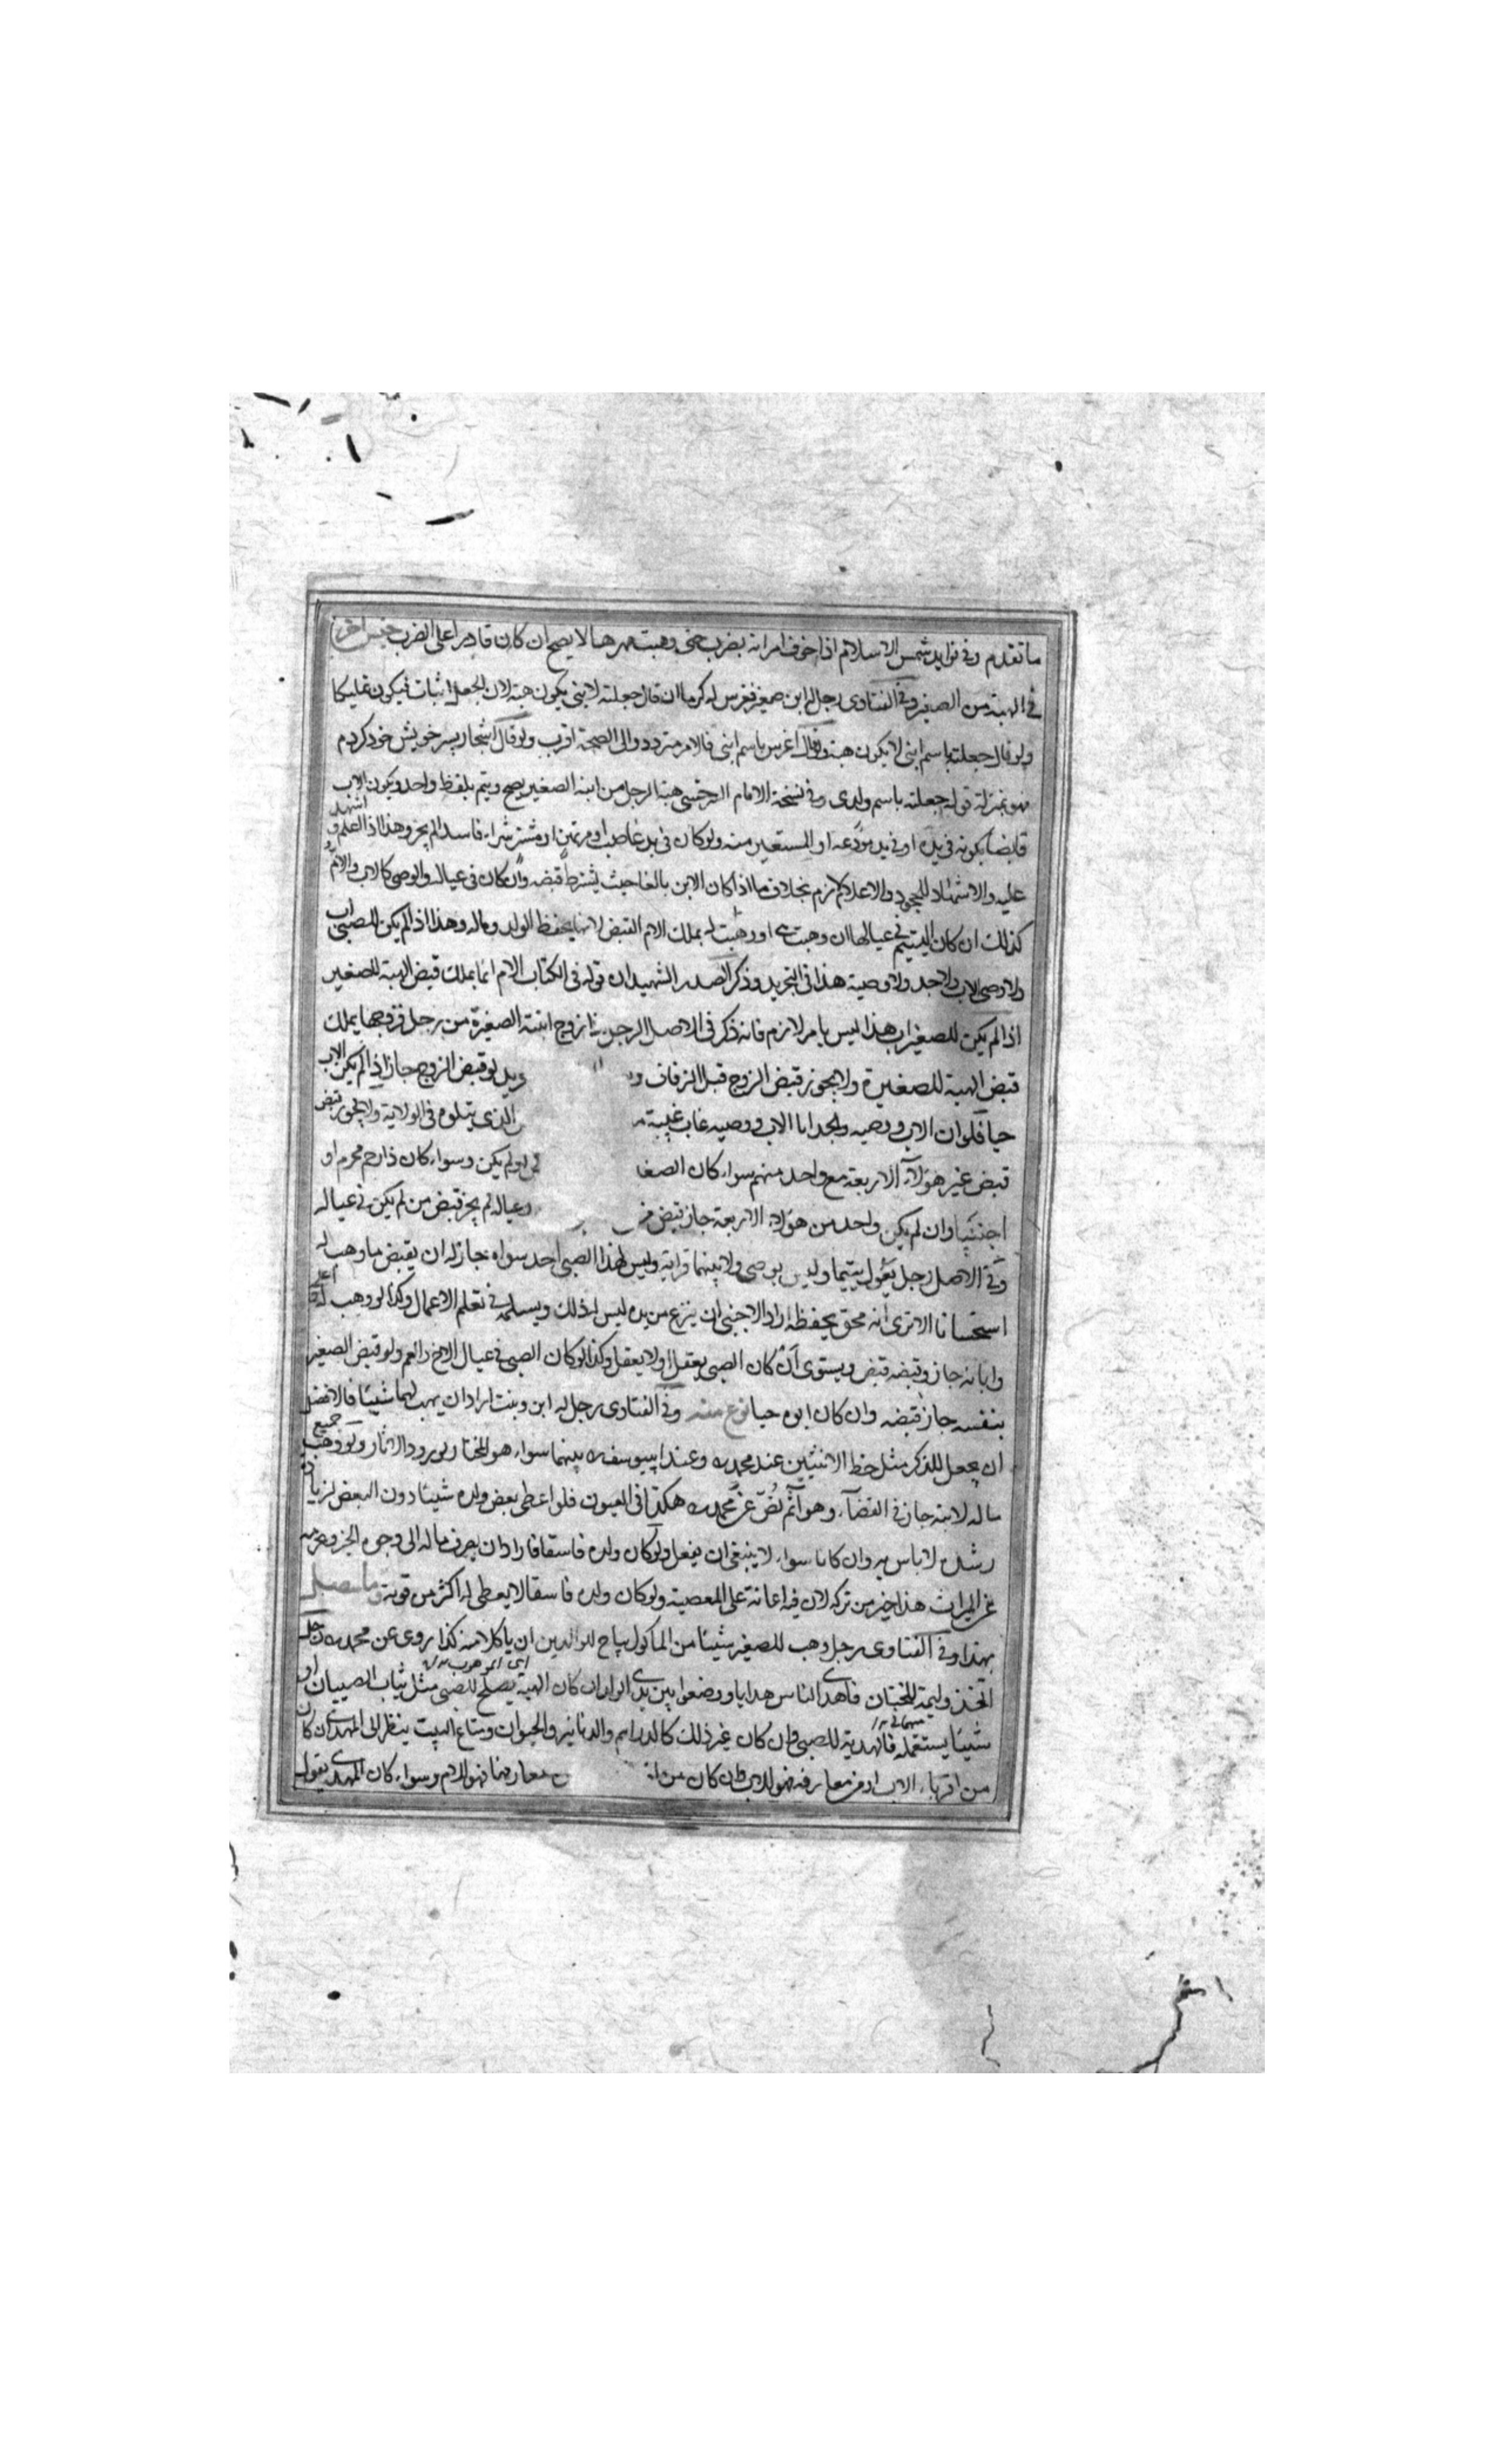 ما تقدم وفي فوايد شمس الاسلام اذا خوف امراته بضرب حتى وهبت مهرها لا يصح ان كان قادرا على الضرب جنس اخر
في الهبة من الصغير وفي الفتاوى رجل له ابن صغير فغرس له كرما ان قال جعلته لابني يكون هبة لان الجعل اثبات فيكون تمليكا
ولو قال جعلته باسم ابني لا يكون هبة ولو قال اغرس باسم ابني فالامر متردد والى الصحة اقرب ولو قال اشجار پسر خويش خود كردم
فهو بمنزلة قوله جعلته باسم ولدي وفي نسخة الامام السرخسي هبة الرجل من ابنه الصغير يصح ويتم بلفظ واحد ويكون الاب
قابضا بكونه في يده او في يد مودعه او المستعير منه ولو كان في يد غاصب او مرتهن او مشتر شراء فاسدا لم يجز وهذا اذا اعلم واشهد
عليه والاشهاد للجحود والاعلام لازم بخلاف ما اذا كان الابن بالغا حيث يشترط قبضه وان كان في عياله والوصي كالاب والام
كذلك ان كان اليتيم في عيالها ان وهبت له او وهبت له يملك الام القبض لانها يحفظ الولد وماله وهذا اذا لم يكن للصبي اب
ولا وصي الاب ولا جد ولا وصية هذا في التجريد وذكر الصدر الشهيد ان قوله في الكتاب الام انما يملك قبض الهبة للصغير
اذا لم يكن للصغير اب هذا ليس بامر لازم فانه ذكر في الاصل الرجل اذا زوج ابنته الصغيرة من رجل فزوجها يملك
قبض الهبة للصغيرة ولا يجوز قبض الزوج قبل الزفاف و لو قبض الزوج جاز اذا لم يكن الاب
حيا فلو ان الاب ووصيه والجد ابا الاب ووصيه غاب غيبة الذي يتلوه في الولاية ولا يجوز قبض
قبض غير هؤلاء الاربعة مع واحد منهم سواء كان او لم يكن وسواء كان ذا رحم محرم او
اجنبيا وان لم يكن واحد من هؤلاء الاربعة جاز قبض عياله لم يجز قبض من لم يكن في عياله
وفي الاصل رجل يعول يتيما وليس بوصي ولا بينهما قرابة وليس لهذا الصبي احد سواه جاز له ان يقبض ما وهب له
استحسانا الا ترى انه محق بحفظه اراد الاجنبي ان ينزع من يده ليس له ذلك ويسلمه في تعلم الاعمال وكذا لو وهب له اعلى
وابانه جاز وقبضه قبض ويستوي ان كان الصبي يعقل او لا يعقل وكذا لو كان الصبي في عيال الاخ او العم ولو قبض الصغير
بنفسه جاز قبضه وان كان ابوه حيا نوع منه وفي الفتاوى رجل له ابن وبنت اراد ان يهب لهما شيئا فالافضل
ان يجعل للذكر مثل حظ الانثيين عند محمد رح وعند ابي يوسف رح بينهما سواء هو المختار لورود الاثار ولو وهب جميع
ماله لابنه جاز في القضاء وهو آثم نص عن محمد رح هكذا في العيون فلو اعطى بعض ولده شيئا دون البعض لزيادة
رشده لا باس به وان كانا سواء لا ينبغي ان يفعل ولو كان ولده فاسقا فاراد ان يصرف ماله الى وجوه الخير ويحرمه
عن الميراث هذا خير من تركه لان فيه اعانة على المعصية ولو كان ولده فاسقا لا يعطي له اكثر من قوته وما يتصل
بهذا وفي الفتاوى رجل وهب للصغير شيئا من الماكول يباح للوالدين ان ياكلا منه كذا روى عن محمد رح رجل
اتخذ وليمة للختان فاهدى الناس هدايا ووضعوا بين يدي الولد ان كان الهبة يصلح للصبي مثل ثياب الصبيان او
شيئا يستعمله فالهدية للصبي وان كان غير ذلك كالدراهم والدنانير والحيوان ومتاع البيت ينظر الى المهدي ان كان
من اقرباء الاب او من معارفه فهو للاب وان كان من معارفها فهو للام وسواء كان المهدي يقول